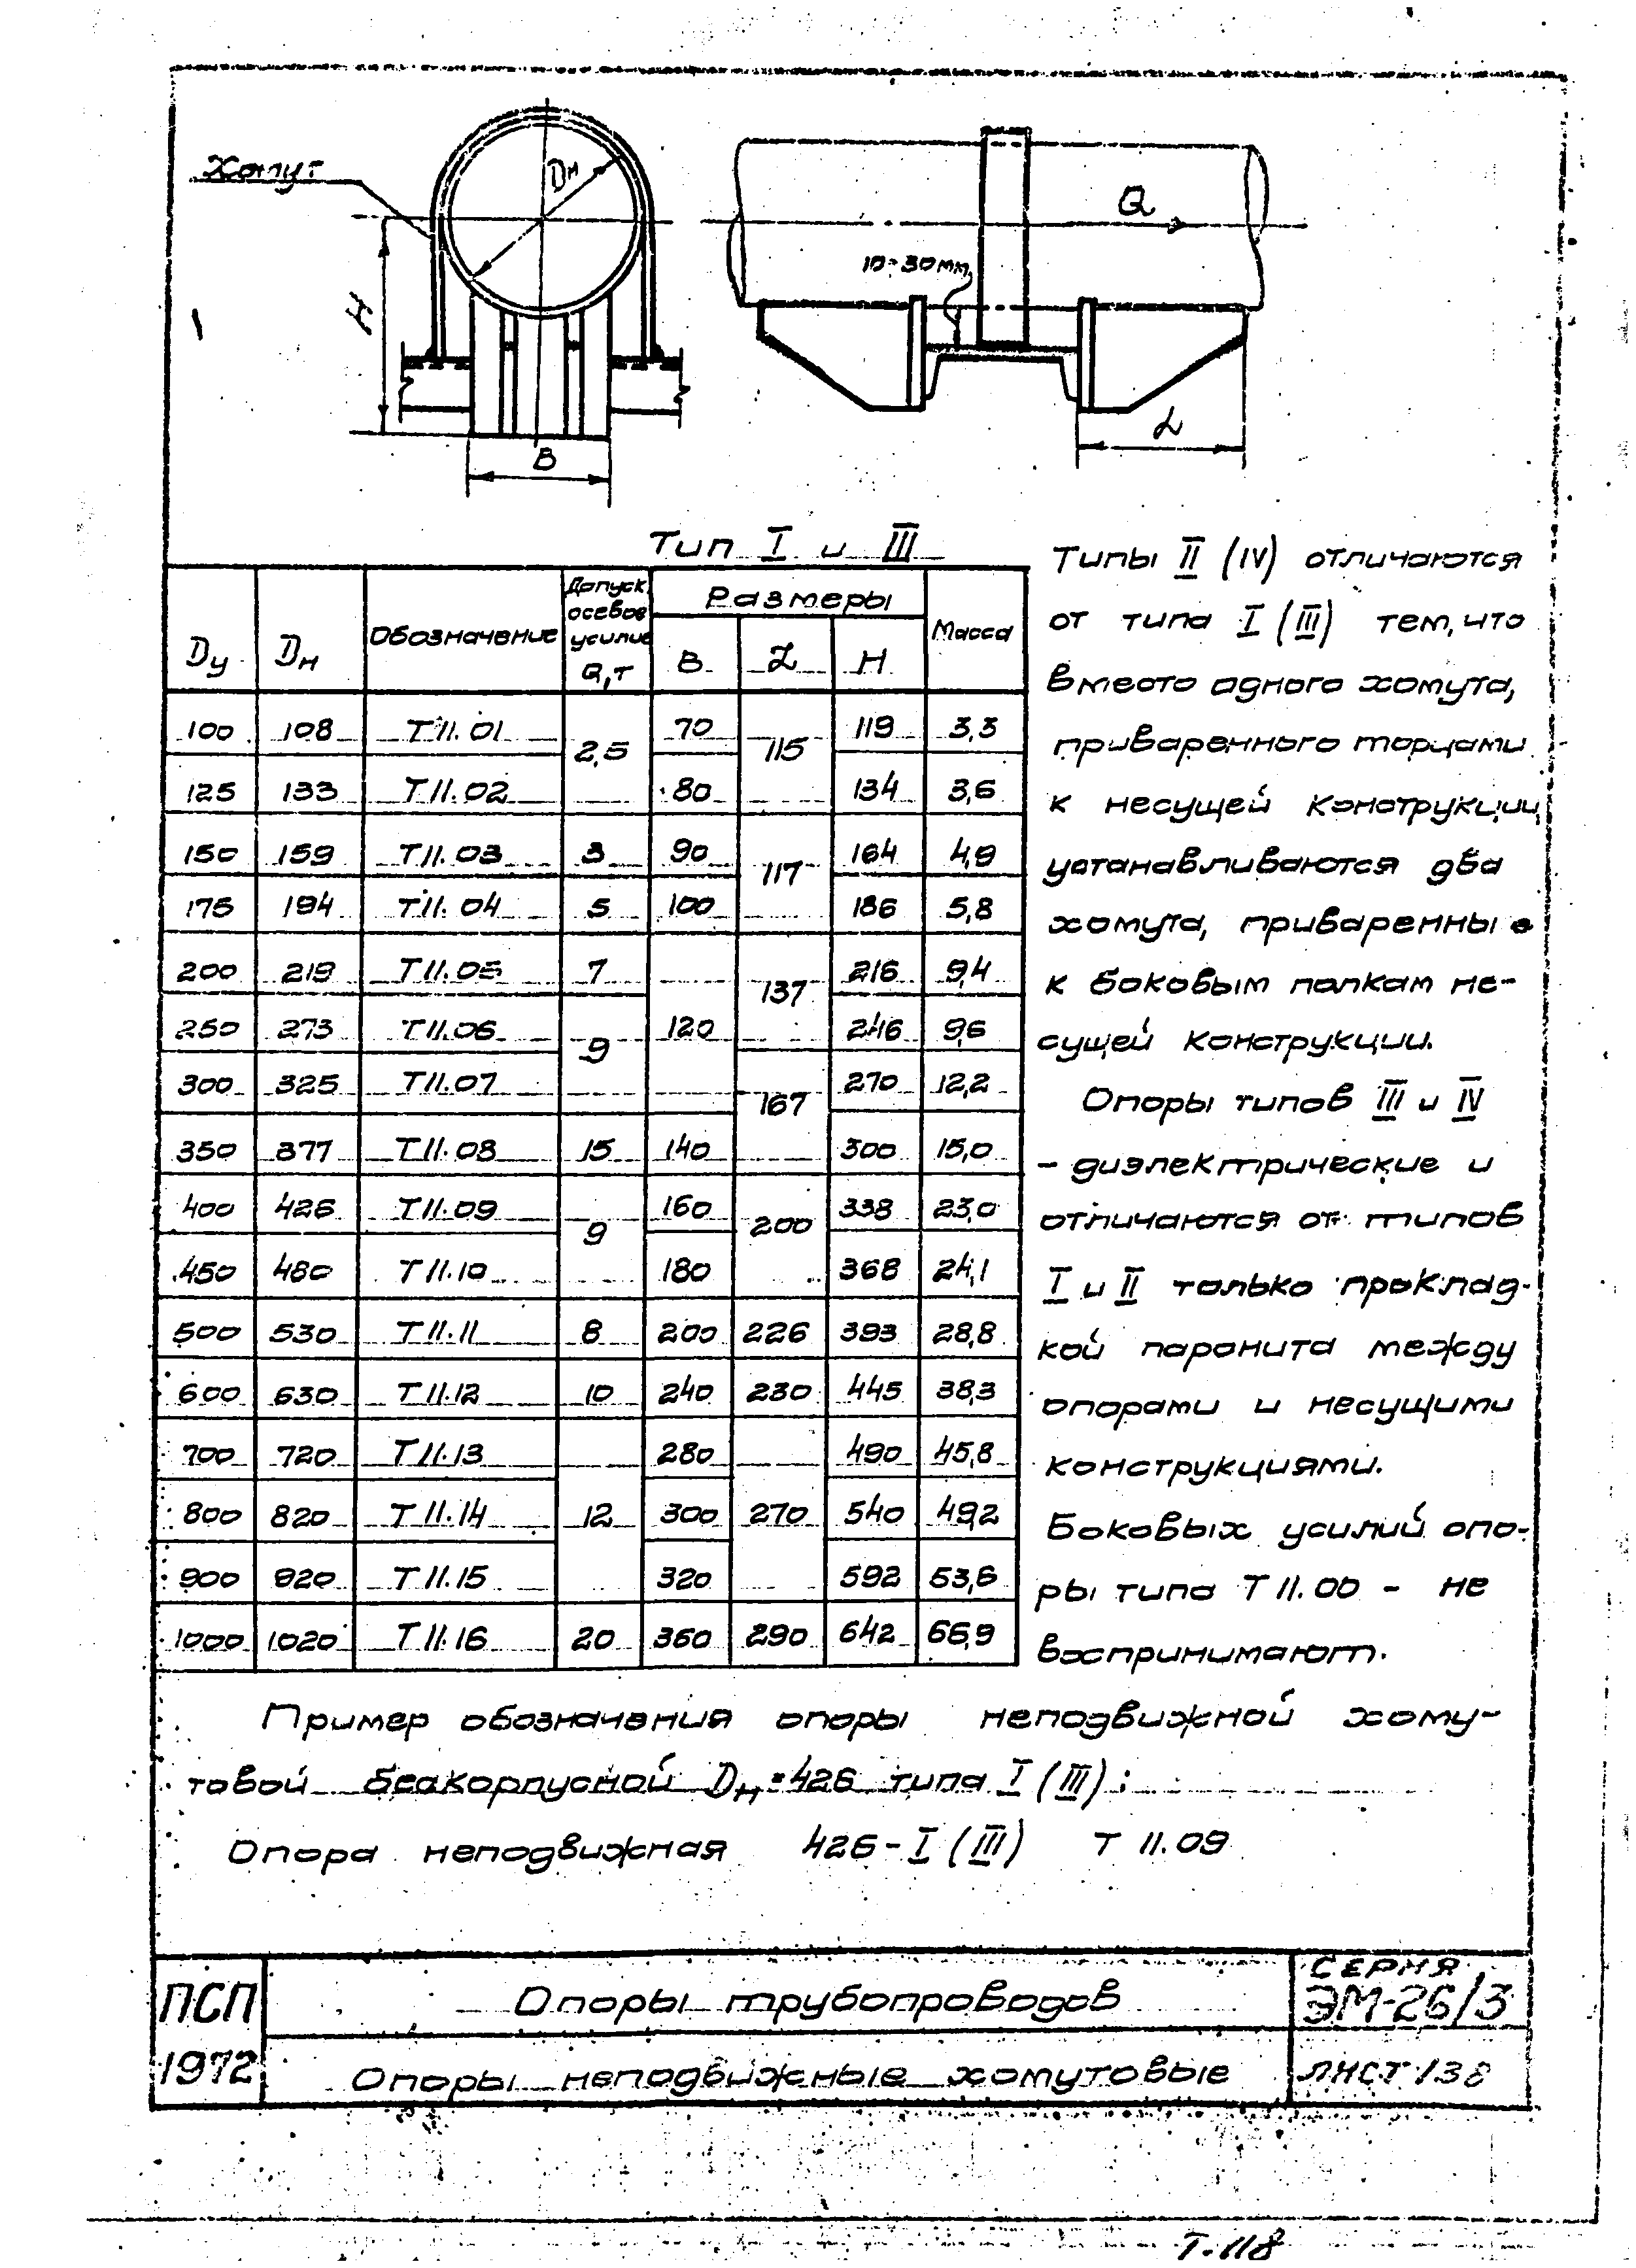 Хомут
Dн
H
B
Q
10-30мм
L
Тип I и III
Dу Dн Обозначение Допуск. осевое усилие Q,т Размеры Масса
B L H
100 108 Т 11.01 2,5 70 115 119 3,3
125 133 Т 11.02 80 134 3,6
150 159 Т 11.03 3 90 117 164 4,9
175 194 Т 11.04 5 100 186 5,8
200 219 Т 11.05 7 137 216 9,4
250 273 Т 11.06 9 120 246 9,6
300 325 Т 11.07 167 270 12,2
350 377 Т 11.08 15 140 300 15,0
400 426 Т 11.09 9 160 200 338 23,0
450 480 Т 11.10 180 368 24,1
500 530 Т 11.11 8 200 226 393 28,8
600 630 Т 11.12 10 240 230 445 38,3
700 720 Т 11.13 280 490 45,8
800 820 Т 11.14 12 300 270 540 49,2
900 920 Т 11.15 320 592 53,6
1000 1020 Т 11.16 20 360 290 642 66,9
Типы II (IV) отличаются
от типа I (III) тем, что
вместо одного хомута,
приваренного торцами
к несущей конструкции,
устанавливаются два
хомута, приваренные
к боковым полкам не-
сущей конструкции.
Опоры типов III и IV
- диэлектрические и
отличаются от типов
I и II только проклад-
кой паронита между
опорами и несущими
конструкциями.
Боковых усилий опо-
ры типа Т 11.00 - не
воспринимают.
Пример обозначения опоры неподвижной хому-
товой бескорпусной Dн=426 типа I (III):
Опора неподвижная 426-I (III) Т 11.09
ПСП
1972
Опоры трубопроводов
Опоры неподвижные хомутовые
СЕРИЯ
ЭМ-26/3
ЛИСТ 138
Т-118